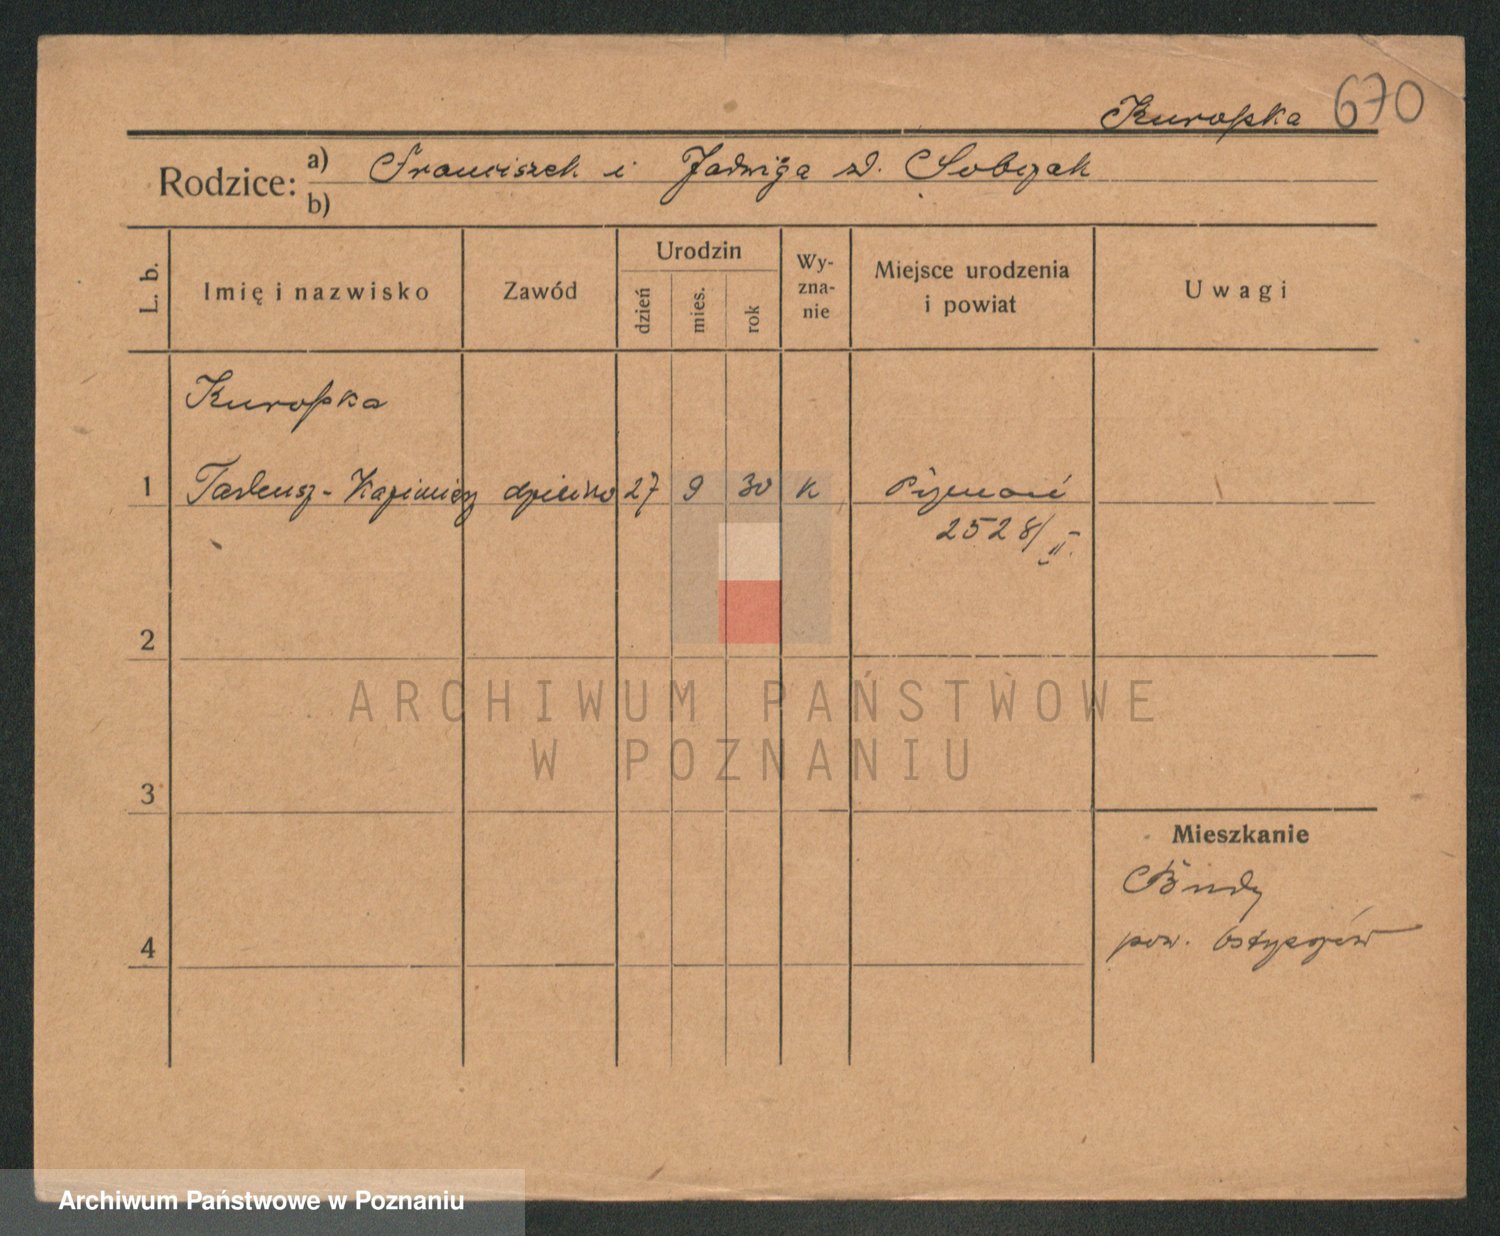 Kuropka 670
Rodzice: a) Franciszek i Jadwiga zd. Sobczak
b)
L. b. Imię i nazwisko Zawód Urodzin dzień mies. rok Wy-zna-nie Miejsce urodzenia i powiat Uwagi
Kuropka
1 Tadeusz-Kazimierz dziecko 27 9 30 k Poznań
2528/II.
2
ARCHIWUM PAŃSTWOWE
W POZNANIU
3
Mieszkanie
pow. Ostrzeszów
4
Archiwum Państwowe w Poznaniu